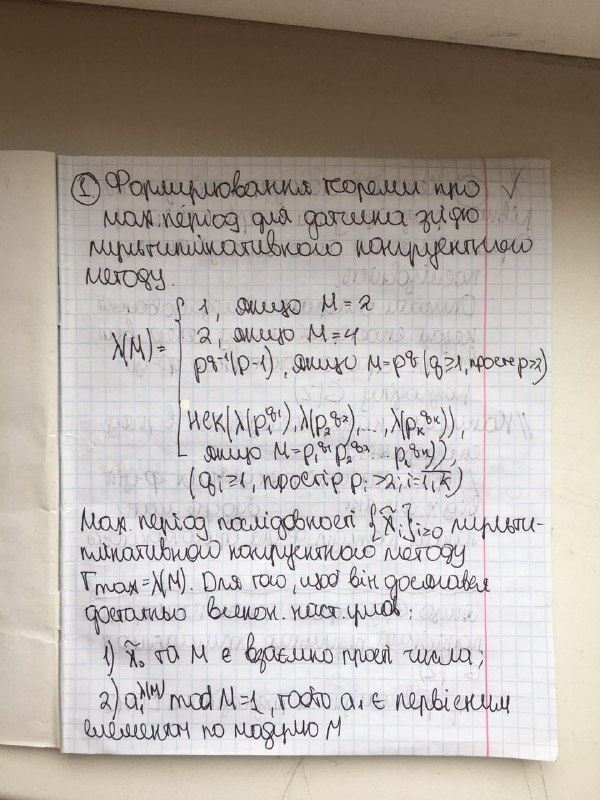 ① Формулювання теореми про
мах.період для датчика згідно
мультиплікативного конгруентного
методу.
1, якщо M = 2
2, якщо M = 4
λ(M) = { p^(q-1)(p-1), якщо M = p^q (q ≥ 1, просте p > 2)
НСК(λ(p₁^q₁), λ(p₂^q₂), ..., λ(p_k^q_k)),
якщо M = p₁^q₁ p₂^q₂ ... p_k^q_k)),
(q_i ≥ 1, простір p_i > 2, i = 1, k)
Мах. період послідовності {x̃_i}_i≥0 мульти-
плікативного конгруентного методу
T_max = λ(M). Для того, щоб він досягався
достатньо викон. наст. умов:
1) x̃₀ та M є взаємно прості числа;
2) a₁^λ(M) mod M = 1, тобто a₁ є первісним
елементом по модулю M